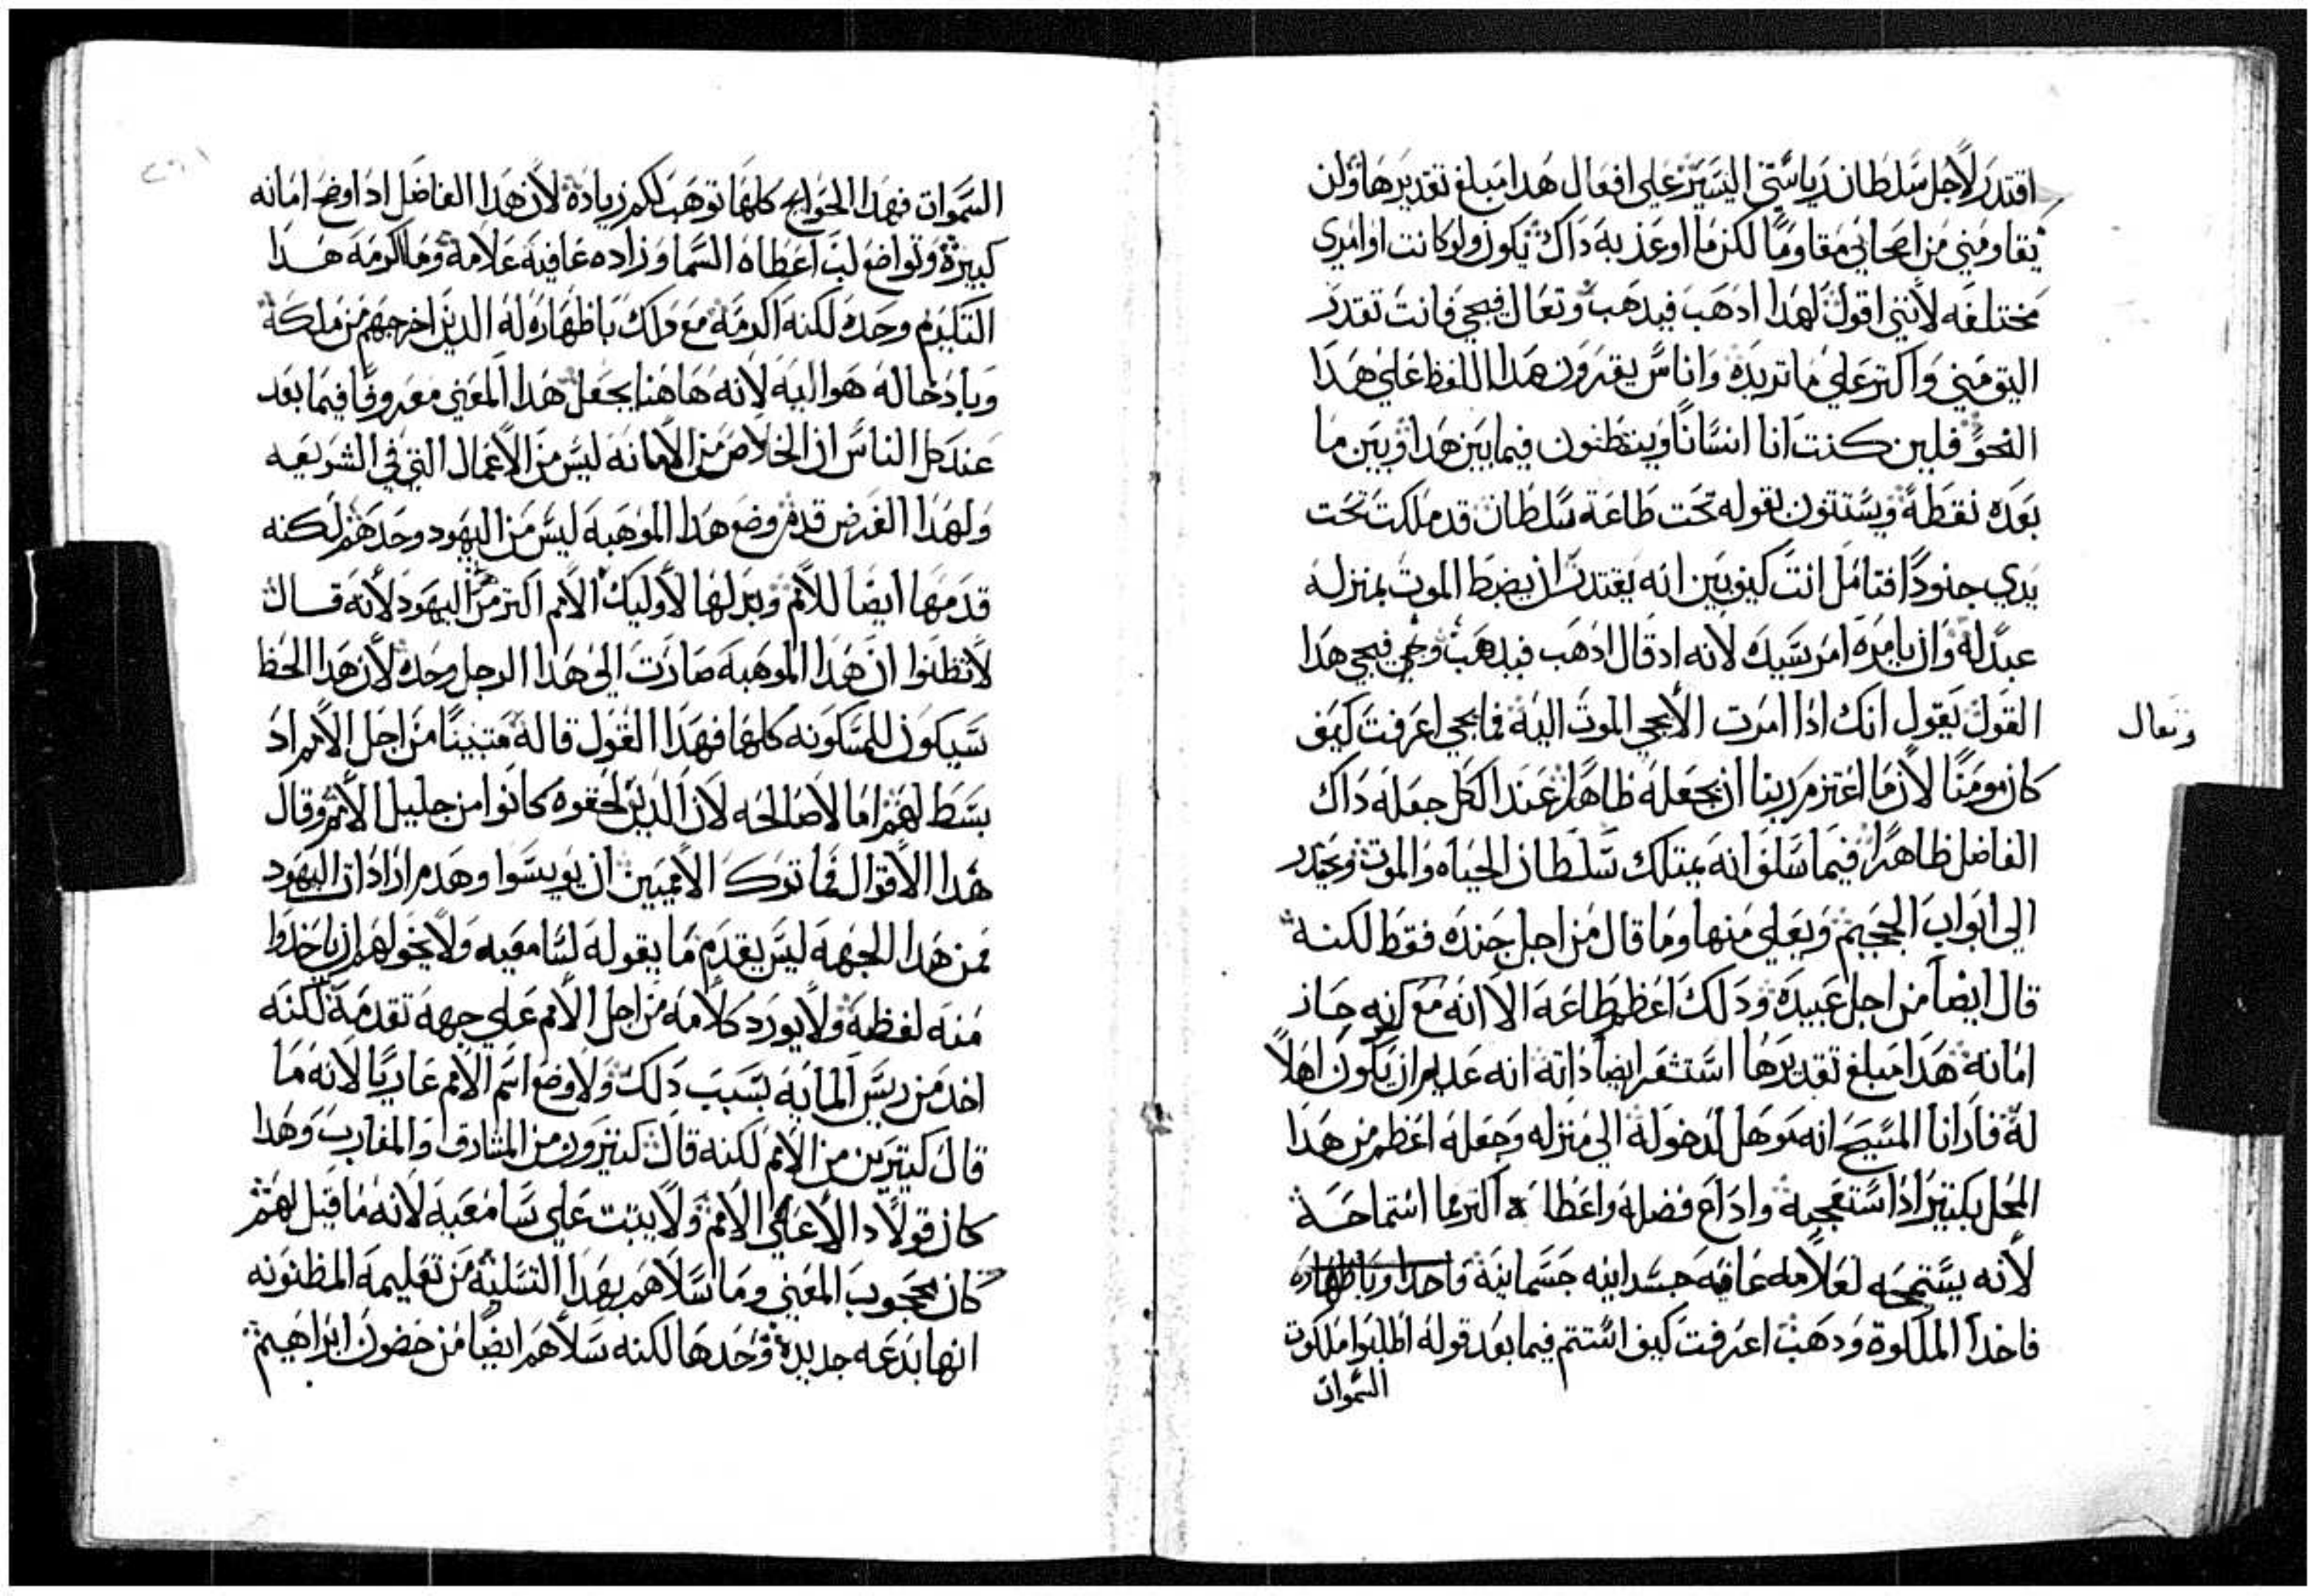 اقتدر لاجل سلطان رياستي اليسير علي افعال هدا مبلغ تقديرها ولن
يقاومني من اصحابي مقاومًا لكن ما اوعذ به داك يكون ولو كانت اوامري
مختلفه لانني اقول لهدا ادهب فيدهب وتعال فيجي فانت تقدر
اليق مني واكتر علي ما تريده واناس يقرون هدا اللفظ علي هدا
النحو فلين كنت انا انسانًا وينقطنون فيما بين هدا وبين ما
بعده نقطة ويستتنون بقوله تحت طاعة سلطان قد ملكت تحت
يدي جنودًا فتامل انت كيف بين انه يقتدر ان يضبط الموت بمنزله
عبد له وان يامره امر سيد لانه اد قال ادهب فيدهب وجي فيجي هدا
القول يقول انك ادا امرت الا يجي الموت اليه فما يجي اعرفت كيف
وتعال
كان مومنًا لان ما اعتزم ربنا ان يجعله ظاهرًا عند الكل جعله داك
الفاضل ظاهرًا فيما سلف انه يمتلك سلطان الحياه والموت ويحدر
الي ابواب الجحيم ويعلي منها وما قال من اجل جنده فقط لكنه
قال ايضًا من اجل عبيده ودلك اعظم طاعة الا انه مع كونه حاز
امانة هدا مبلغ تقديرها استشعر ايضًا داته انه عديم ان يكون اهلاً
له فارانا المسيح انه موهل لدخوله الي منزله وجعله اعظم من هدا
المحل بكتير اد استعجبه واداع فضله واعطاه اكتر مما استماحه
لانه يستمحه لغلامه عافيه جسدانيه جسمانية
فاخد الملكوة ودهب اعرفت كيف استتم فيما بعد قوله اطلبوا ملكوت
السموات
السموات فهدا الحوايج كلها توهب لكم زيادة لان هدا الفاضل اد اوضح امانه
كبيرة وتواضع لب اعطاه السما وزاده عافية علامه وما اكرمه هدا
التكريم وحده لكنه اكرمه مع دلك باظهاره له الدين اخرجهم من ملكه
وبادخاله هو اليه لانه هاهنا يجعل هدا المعني معروفًا فيما بعد
عند كل الناس ان الخلاص من الامانه ليس من الاعمال التي في الشريعه
ولهدا الغرض قدم وضع هدا الموهبه ليس من اليهود وحدهم لكنه
قدمها ايضًا للامم وبدلها لاوليك الامم اكتر من اليهود لانه قال
لا تظنوا ان هدا الموهبه صارت الي هدا الرجل وحده لان هدا الحظ
سيكون للمسكونه كلها فهدا القول قاله متنبيًا من اجل الامم اد
بسط لهم امالا صالحه لان الدين لحقوه كانوا من جليل الامم وقال
هدا الاقوال فما ترك الامميين ان يويسوا وهدم اراداة اليهود
فمن هدا الجهه ليس يقدم ما يقوله لسامعيه ولا يخولهم ان ياخدوا
منه لفظه ولا يورد كلامه من اجل الامم علي جهه تقدمه لكنه
اخد من ريس الماية بسبب دلك ولا وضع اسم الامم عاريًا لانه ما
قال كتيرين من الامم لكنه قال كتيرون من المشارق والمغارب وهدا
كان قولاً دالاً علي الامم ولا يتبت علي سامعيه لانه ما قيل لهم
كان محجوب المعني وما سلاهم بهدا التسليه من تعليمه المظنونه
انها بدعه جديدة وحدها لكنه سلاهم ايضًا من حضون ابراهيم